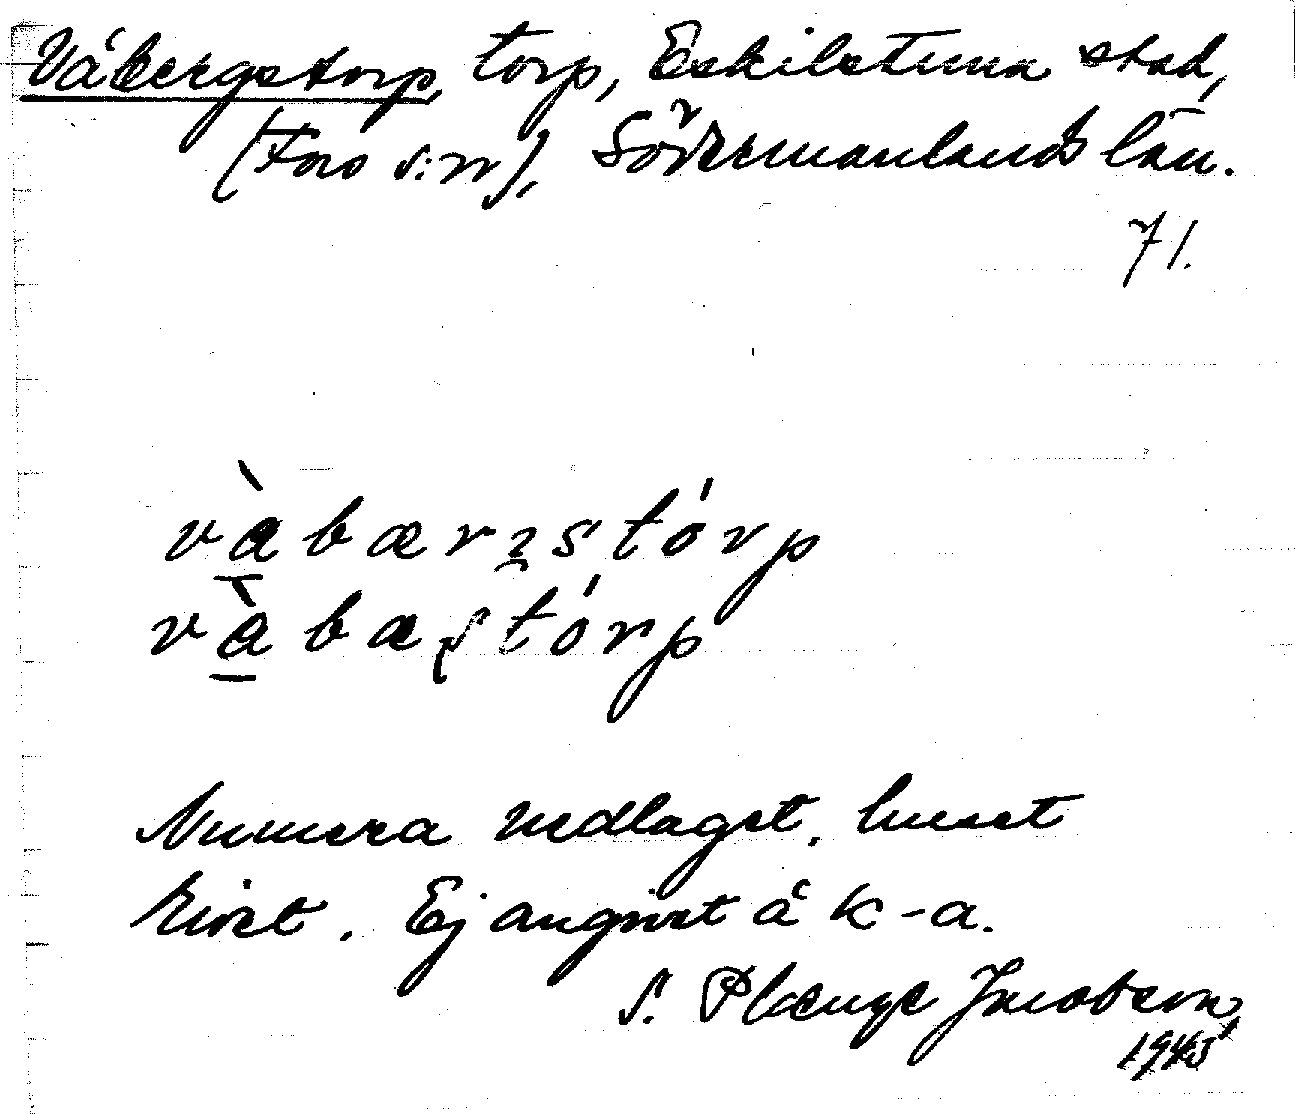 Våbergstorp, torp, Eskilstuna stad,
(Fors s:n), Södermanlands län.
71.
vàbærgstórp
vàbæstórp
Numera nedlaget, huset
rivet. Ej angivet å k-a.
S. Plænge Jacobson,
1945